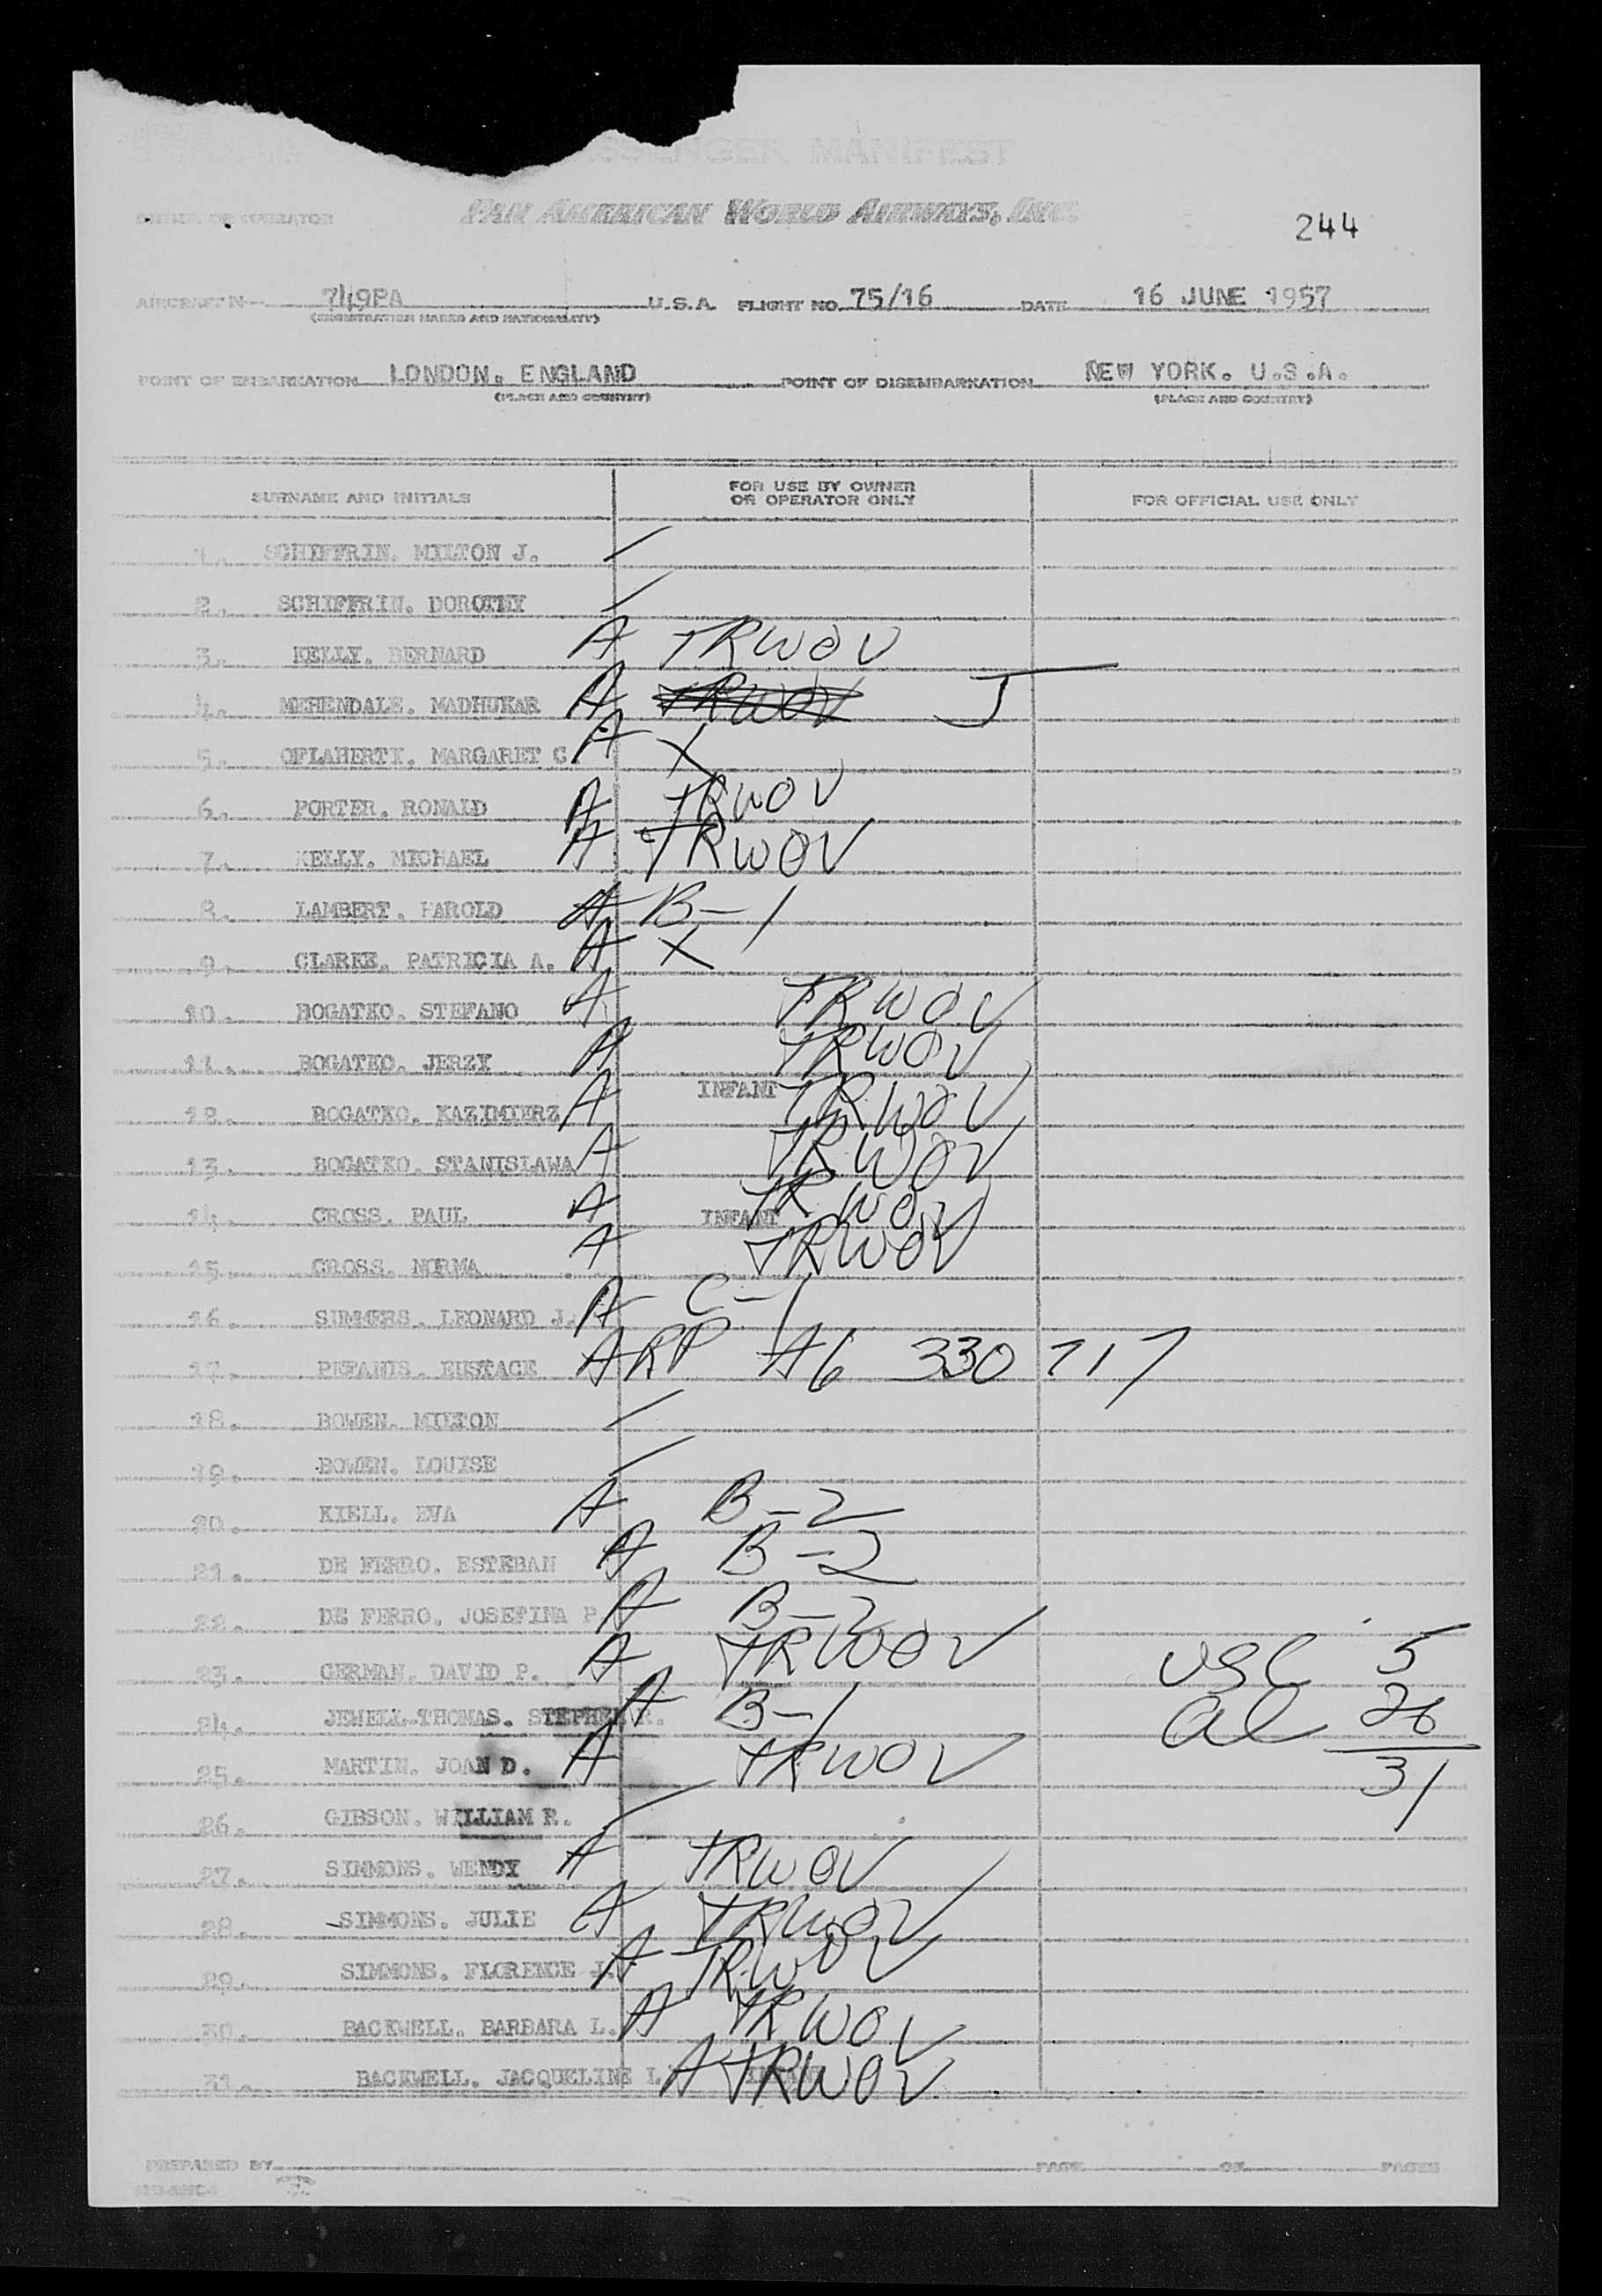 PASSENGER MANIFEST
OWNER OR OPERATOR PAN AMERICAN WORLD AIRWAYS, INC.
244
AIRCRAFT N 749PA U.S.A. FLIGHT NO. 75/16 DATE 16 JUNE 1957
(REGISTRATION MARKS AND NATIONALITY)
POINT OF EMBARKATION LONDON. ENGLAND POINT OF DISEMBARKATION NEW YORK. U.S.A.
(PLACE AND COUNTRY) (PLACE AND COUNTRY)
SURNAME AND INITIALS FOR USE BY OWNER OR OPERATOR ONLY FOR OFFICIAL USE ONLY
1. SCHIFFRIN. MILTON J.
2. SCHIFFRIN. DOROTHY
3. KELLY. BERNARD A TRWOV
4. MEHENDALE. MADHUKAR A TRWOV J
5. OFLAHERTY. MARGARET C A X
6. PORTER. RONALD A TRWOV
7. KELLY. MICHAEL A TRWOV
8. LAMBERT. HAROLD A B-1
9. CLARKE. PATRICIA A. A X
10. BOGATKO. STEFANO A TRWOV
11. BOGATKO. JERZY A TRWOV
12. BOGATKO. KAZIMIERZ A INFANT TRWOV
13. BOGATKO. STANISLAWA A TRWOV
14. GROSS. PAUL A INFANT TRWOV
15. GROSS. NORMA A TRWOV
16. SUMMERS. LEONARD J. A C-1
17. EUSTACE ARP A6 330 717
18. BOWEN. MILTON
19. BOWEN. LOUISE
20. KIELL. EVA A B-2
21. DE FERRO. ESTEBAN A B-2
22. DE FERRO. JOSEFINA P. A B-2
23. GERMAN. DAVID P. A TRWOV USC 5
24. JEWELL-THOMAS. STEPHEN R. A B-1 al 26
25. MARTIN. JOAN D. A TRWOV 31
26. GIBSON. WILLIAM R.
27. SIMMONS. WENDY A TRWOV
28. SIMMONS. JULIE A TRWOV
29. SIMMONS. FLORENCE J. A TRWOV
30. BACKWELL. BARBARA L. A TRWOV
31. BACKWELL. JACQUELINE L A TRWOV
PREPARED BY PAGE OF PAGES